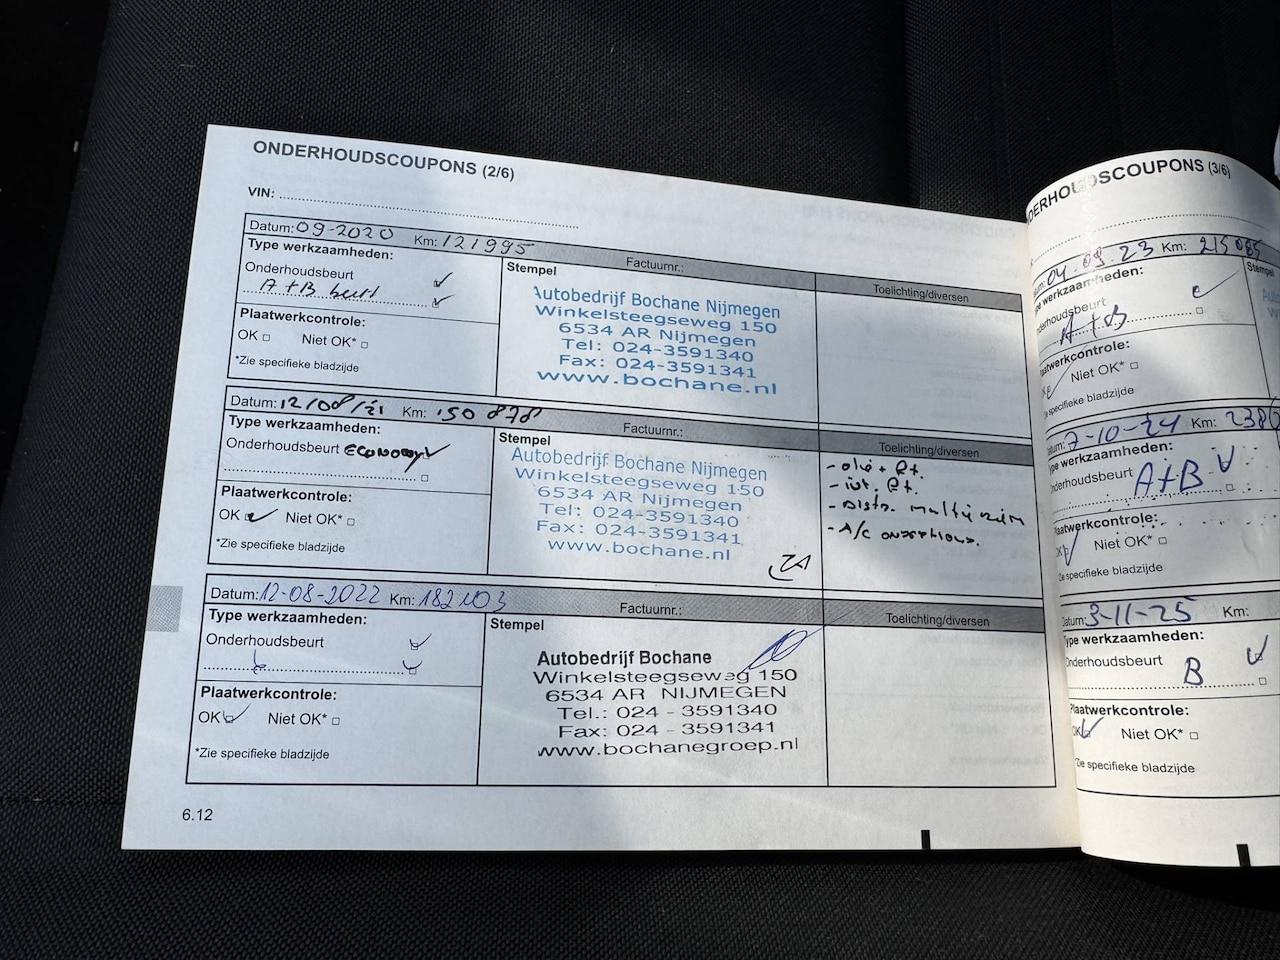 ONDERHOUDSCOUPONS (2/6)
VIN:
Datum: 09-2020 Km: 121995 Factuurnr.:
Type werkzaamheden:
Onderhoudsbeurt
A+B beurt
Plaatwerkcontrole:
OK Niet OK*
*Zie specifieke bladzijde
Stempel
Autobedrijf Bochane Nijmegen
Winkelsteegseweg 150
6534 AR Nijmegen
Tel: 024-3591340
Fax: 024-3591341
www.bochane.nl
Toelichting/diversen
Datum: 12/08/21 Km: 150 878 Factuurnr.:
Type werkzaamheden:
Onderhoudsbeurt Economy
Plaatwerkcontrole:
OK Niet OK*
*Zie specifieke bladzijde
Stempel
Autobedrijf Bochane Nijmegen
Winkelsteegseweg 150
6534 AR Nijmegen
Tel: 024-3591340
Fax: 024-3591341
www.bochane.nl
Toelichting/diversen
- olie + flt.
- int. flt.
- Distr. multiriem
- A/C
Datum: 12-08-2022 Km: 182403 Factuurnr.:
Type werkzaamheden:
Onderhoudsbeurt
Plaatwerkcontrole:
OK Niet OK*
*Zie specifieke bladzijde
Stempel
Autobedrijf Bochane
Winkelsteegseweg 150
6534 AR NIJMEGEN
Tel.: 024 - 3591340
Fax.: 024 - 3591341
www.bochanegroep.nl
Toelichting/diversen
6.12
ONDERHOUDSCOUPONS (3/6)
04-09-23 Km: 215085
Type werkzaamheden:
Onderhoudsbeurt
A+B
Plaatwerkcontrole:
Niet OK*
Zie specifieke bladzijde
Stempel
Datum: 7-10-24 Km: 238
Type werkzaamheden:
Onderhoudsbeurt A+B
Plaatwerkcontrole:
OK Niet OK*
Zie specifieke bladzijde
Datum: 3-11-25 Km:
Type werkzaamheden:
Onderhoudsbeurt
B
Plaatwerkcontrole:
OK Niet OK*
Zie specifieke bladzijde